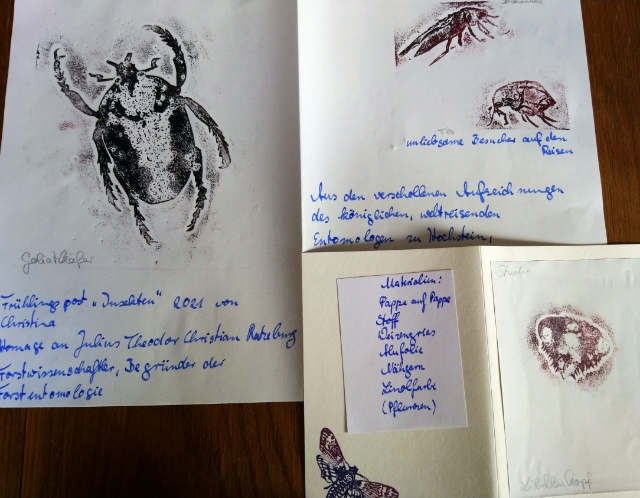 Goliathkäfer
Frühlingspost „Insekten" 2021 von
Christina
Homage an Julius Theodor Christian Ratzeburg
Forstwissenschaftler, Begründer der
Forstentomologie
Floh
unliebsame Besucher auf den
Reisen
Aus den verschollenen Aufzeichnungen
des königlichen, weltreisenden
Entomologen zu Hochstein,
Materialien:
Pappe auf Pappe
Stoff
Weizengries
Alufolie
Nähgarn
Linolfarbe
(Pflanzen)
Studie